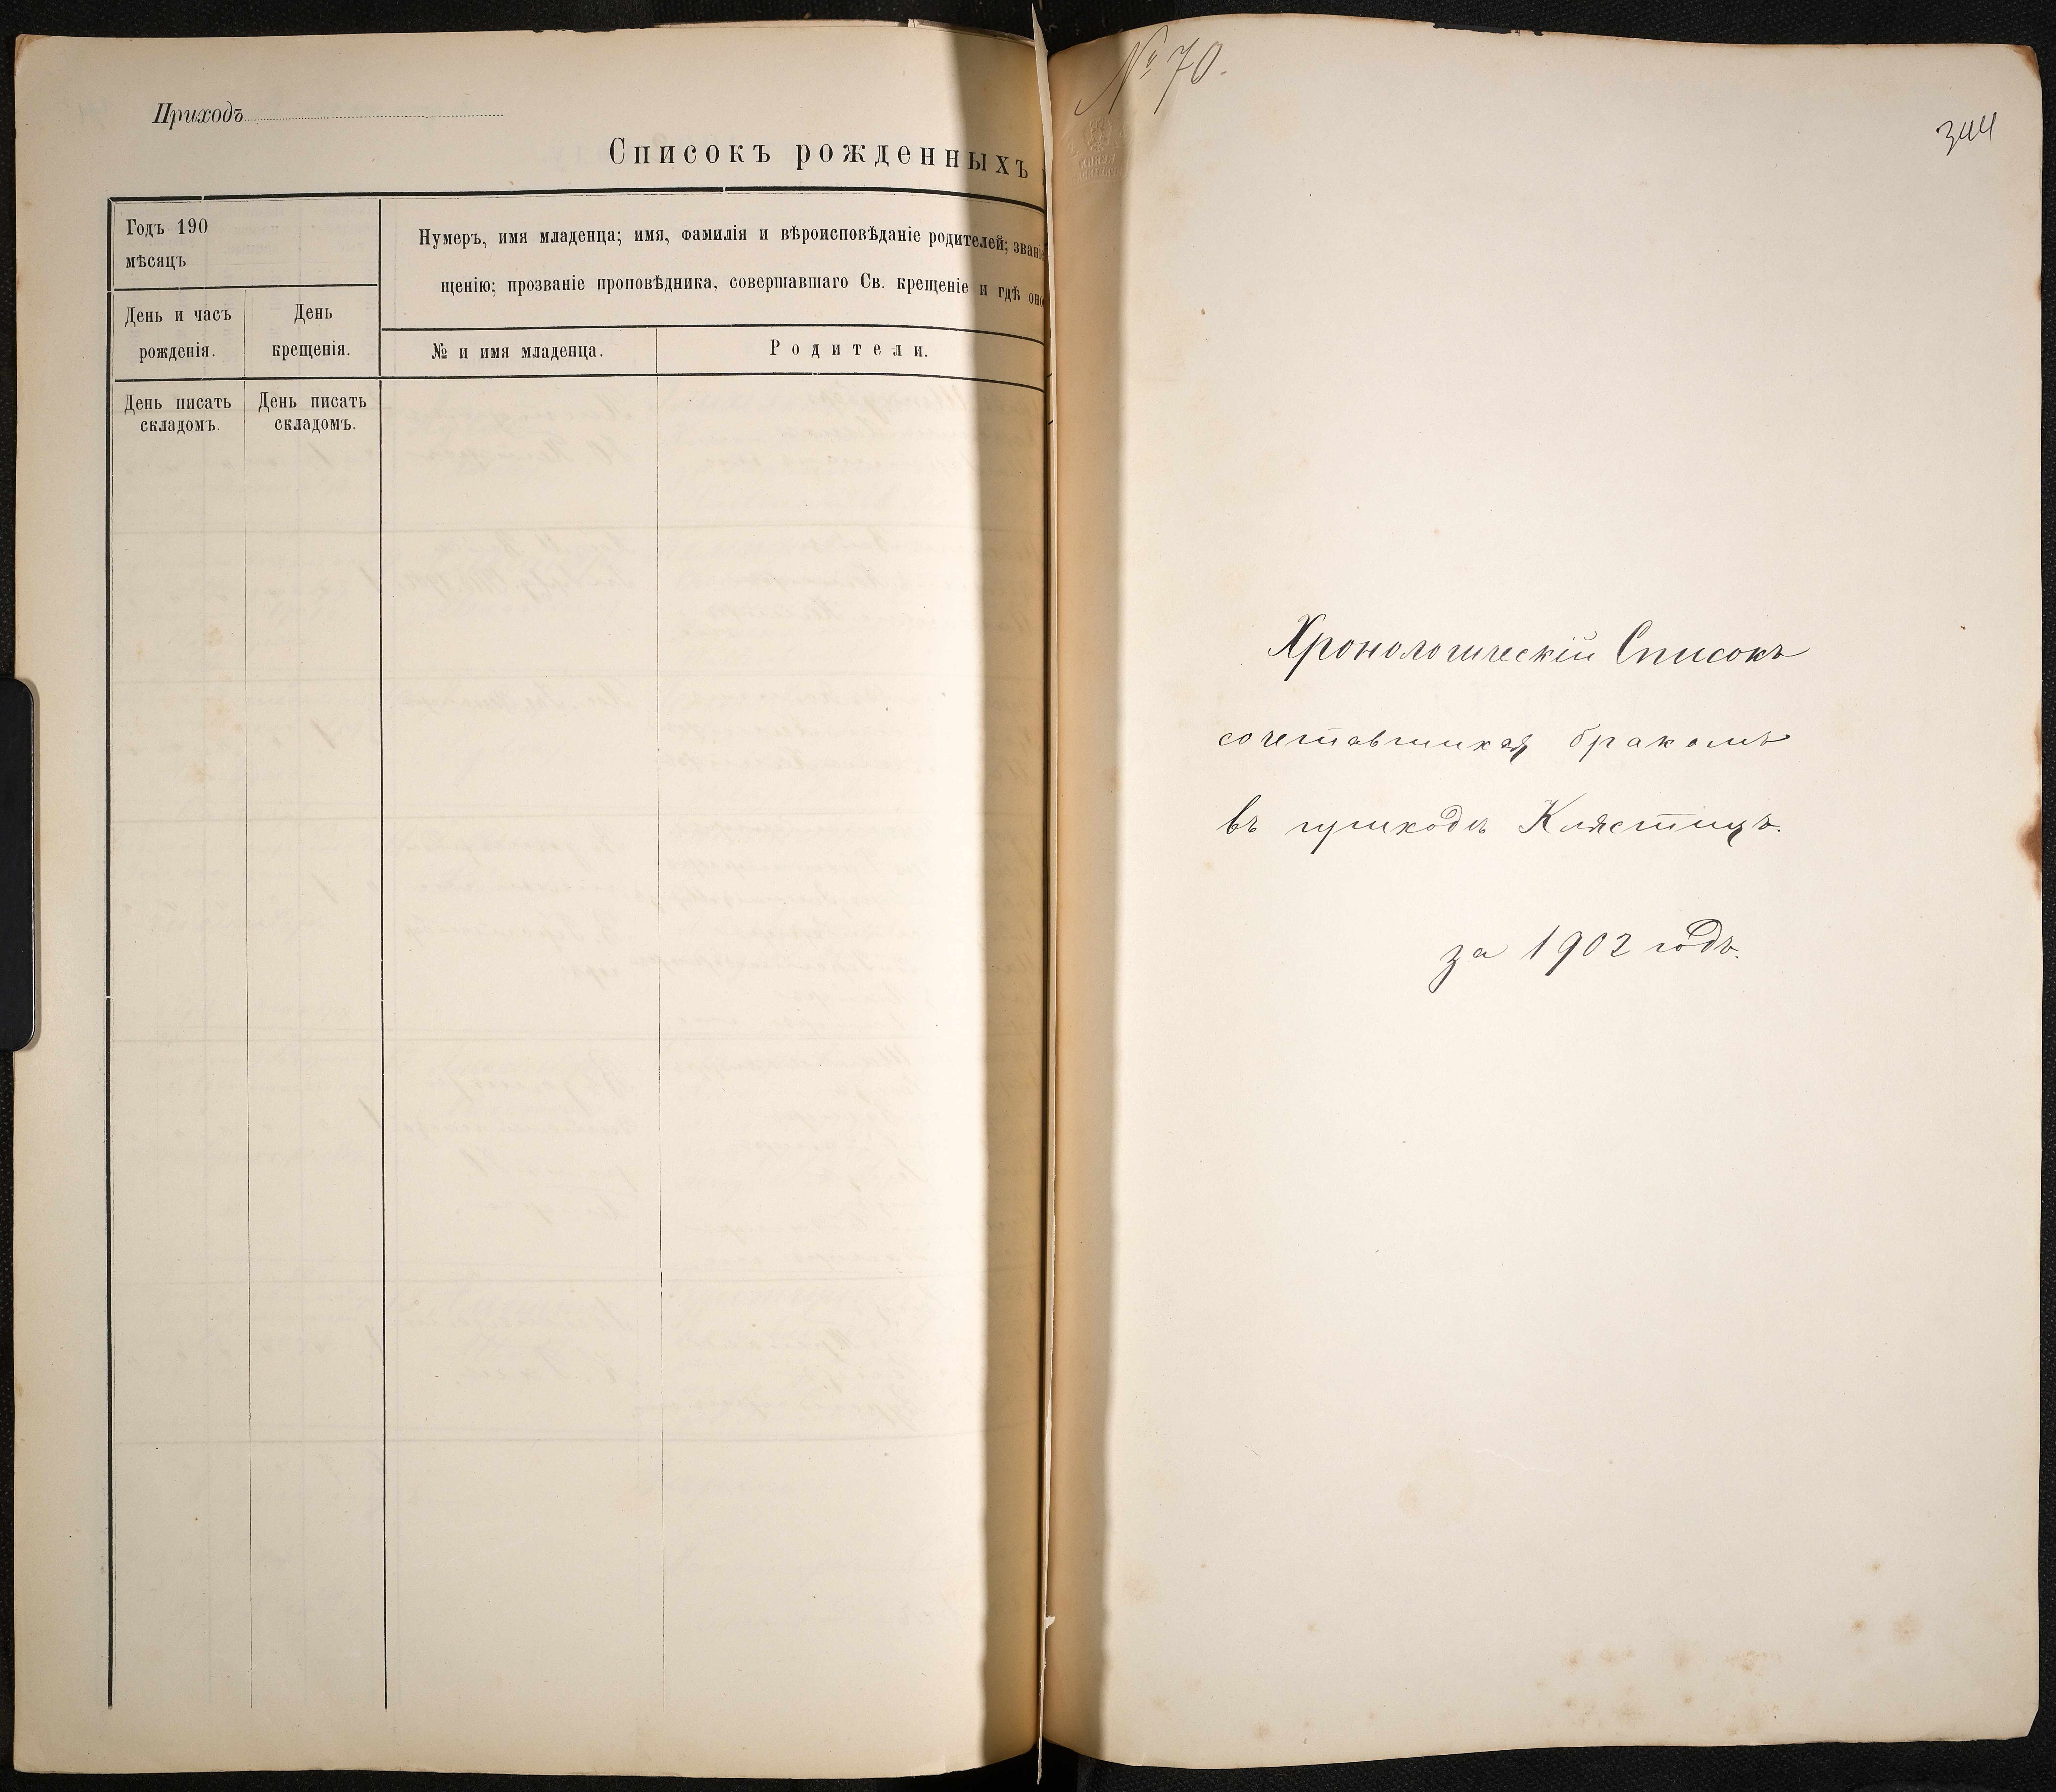 Приходъ
Списокъ рожденныхъ
Годъ 190
мѣсяцъ
Нумеръ, имя младенца; имя, фамилія и вѣроисповѣданіе родителей; званіе
щенію; прозваніе проповѣдника, совершавшаго Св. крещеніе и гдѣ оно
День и часъ
рожденія.
День
крещенія.
№ и имя младенца.
Родители.
День писать
складомъ.
День писать
складомъ.
№ 70.
344
Хронологическій Списокъ
сочетавшихся бракомъ
въ приходѣ Клястицъ.
за 1902 годъ.